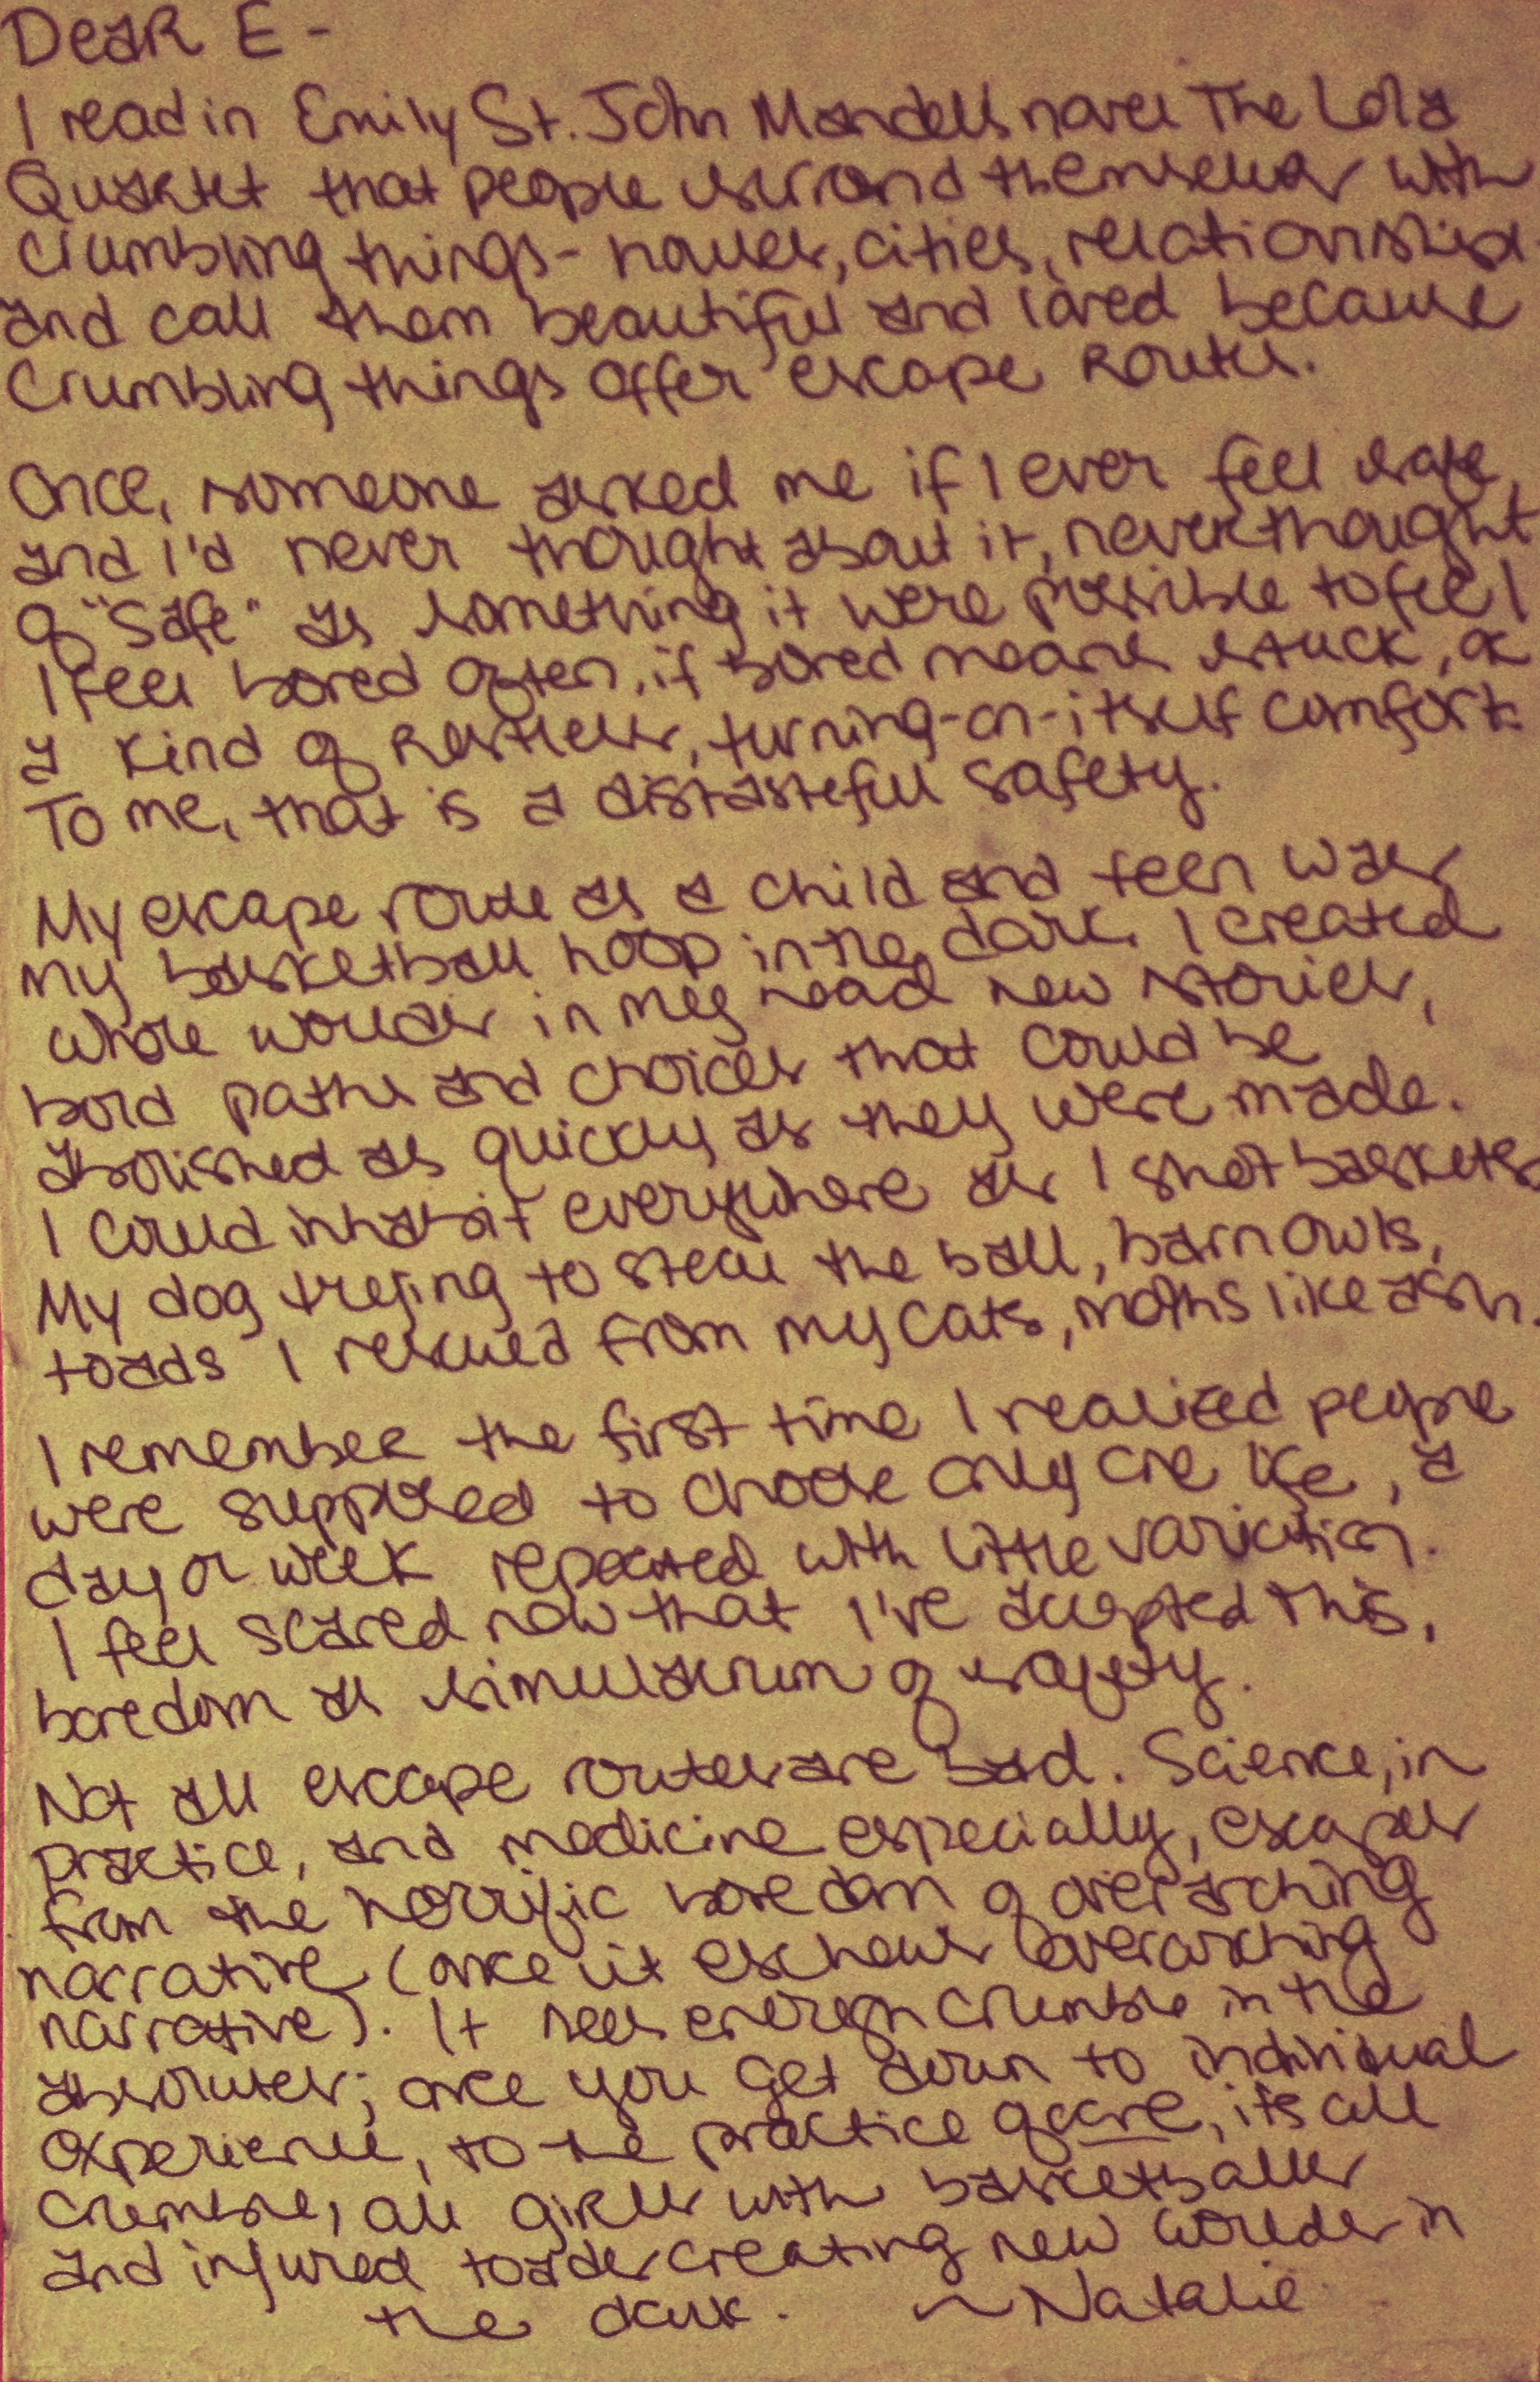 Dear E -
I read in Emily St. John Mandell's novel The Lola
Quartet that people surround themselves with
crumbling things - houses, cities, relationships
and call them beautiful and loved because
crumbling things offer escape routes.
Once, someone asked me if I ever feel safe,
and I'd never thought about it, never thought
of "safe" as something it were possible to feel
I feel bored often, if bored means stuck, or
a kind of restless, turning-on-itself comfort.
To me, that is a distasteful safety.
My escape route as a child and teen was
my basketball hoop in the dark. I created
whole worlds in my head new stories,
bold paths and choices that could be
abolished as quickly as they were made.
I could inhabit everywhere as I shot baskets.
My dog trying to steal the ball, barn owls,
toads I rescued from my cats, moths like ash.
I remember the first time I realized people
were supposed to choose only one life, a
day or week repeated with little variation.
I feel scared now that I've accepted this,
boredom as simulacrum of safety.
Not all escape routes are bad. Science, in
practice, and medicine especially, escapes
from the horrific boredom of overarching
narrative (once it eschews overarching
narrative). It sees enough crumble in the
absolutes; once you get down to individual
experience, to the practice of care, it's all
crumble, all girls with basketballs
and injured toads creating new worlds in
the dark. ~Natalie